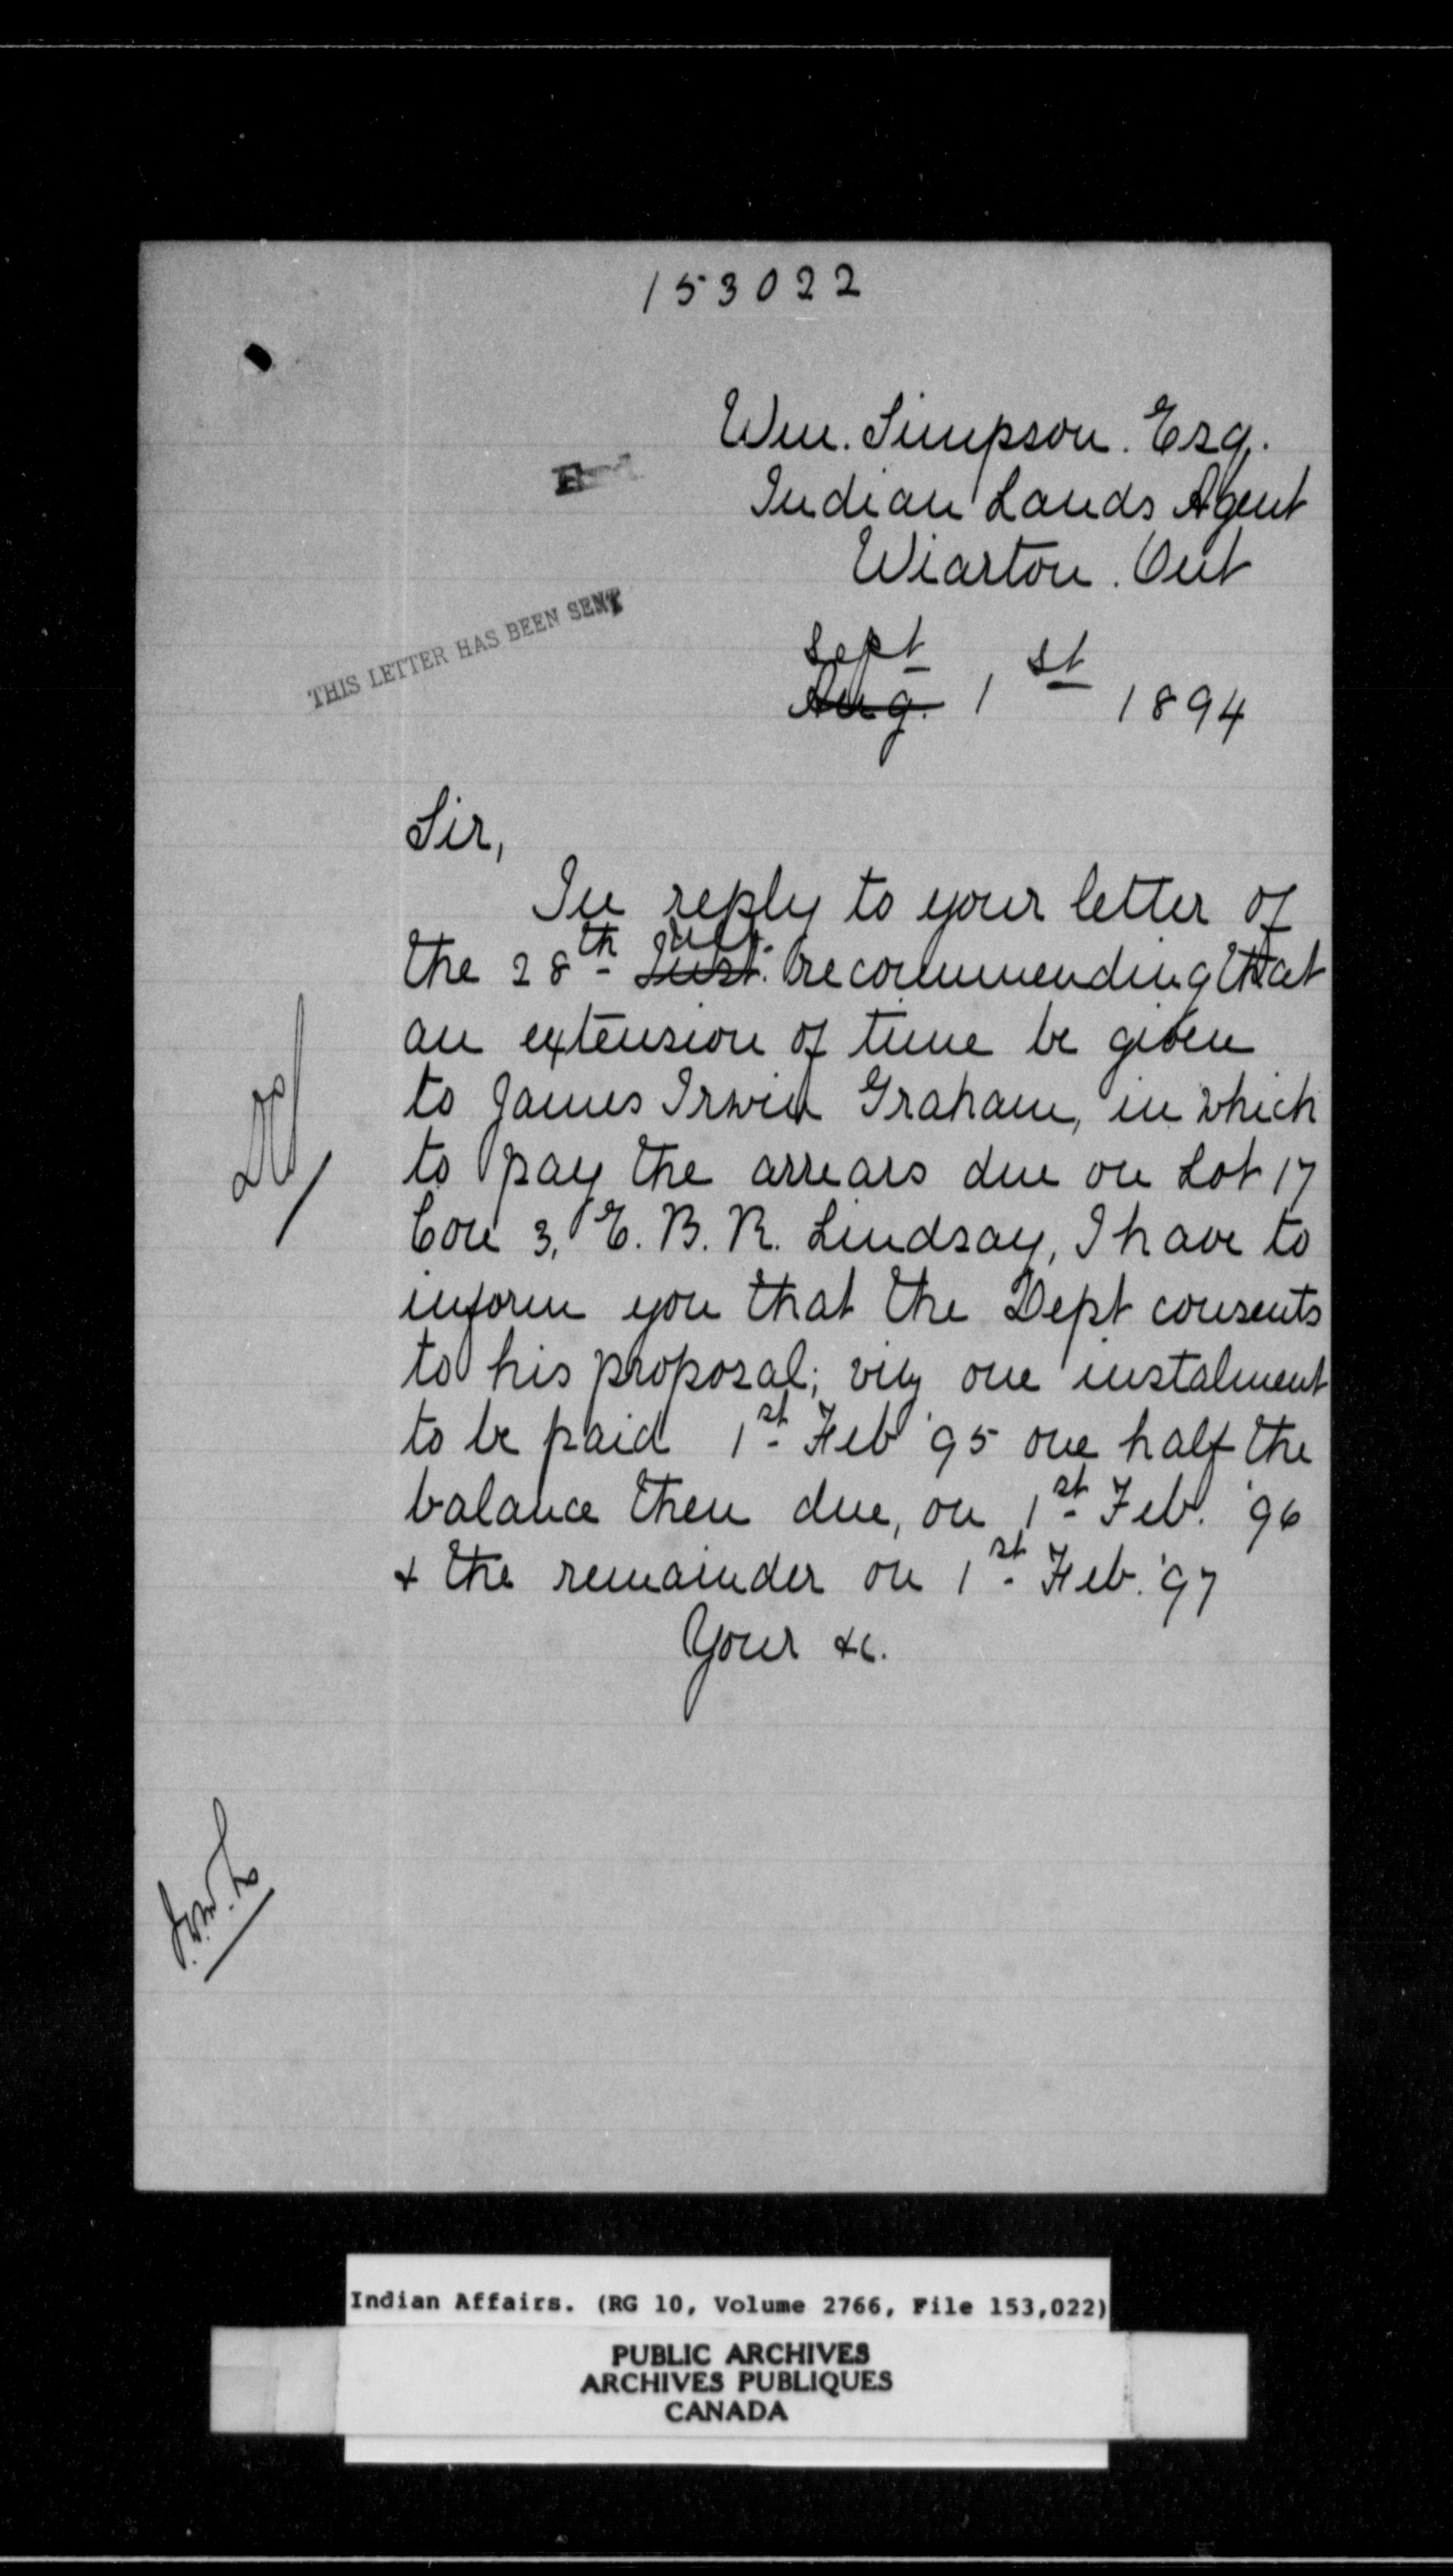 153022
Wm. Simpson. Esq.
Indian Lands Agent
Wiarton. Ont
THIS LETTER HAS BEEN SENT
Sept
Aug. 1st 1894
Sir,
In reply to your letter of
the 28th Inst. ult. recommending that
an extension of time be given
to James Irwin Graham, in which
to pay the arrears due on Lot 17
Con 3, E. B. R. Lindsay, I have to
inform you that the Dept consents
to his proposal; viz one instalment
to be paid 1st Feb '95 one half the
balance then due, on 1st Feb. '96
& the remainder on 1st Feb. '97
Your &c.
Indian Affairs. (RG 10, Volume 2766, File 153,022)
PUBLIC ARCHIVES
ARCHIVES PUBLIQUES
CANADA